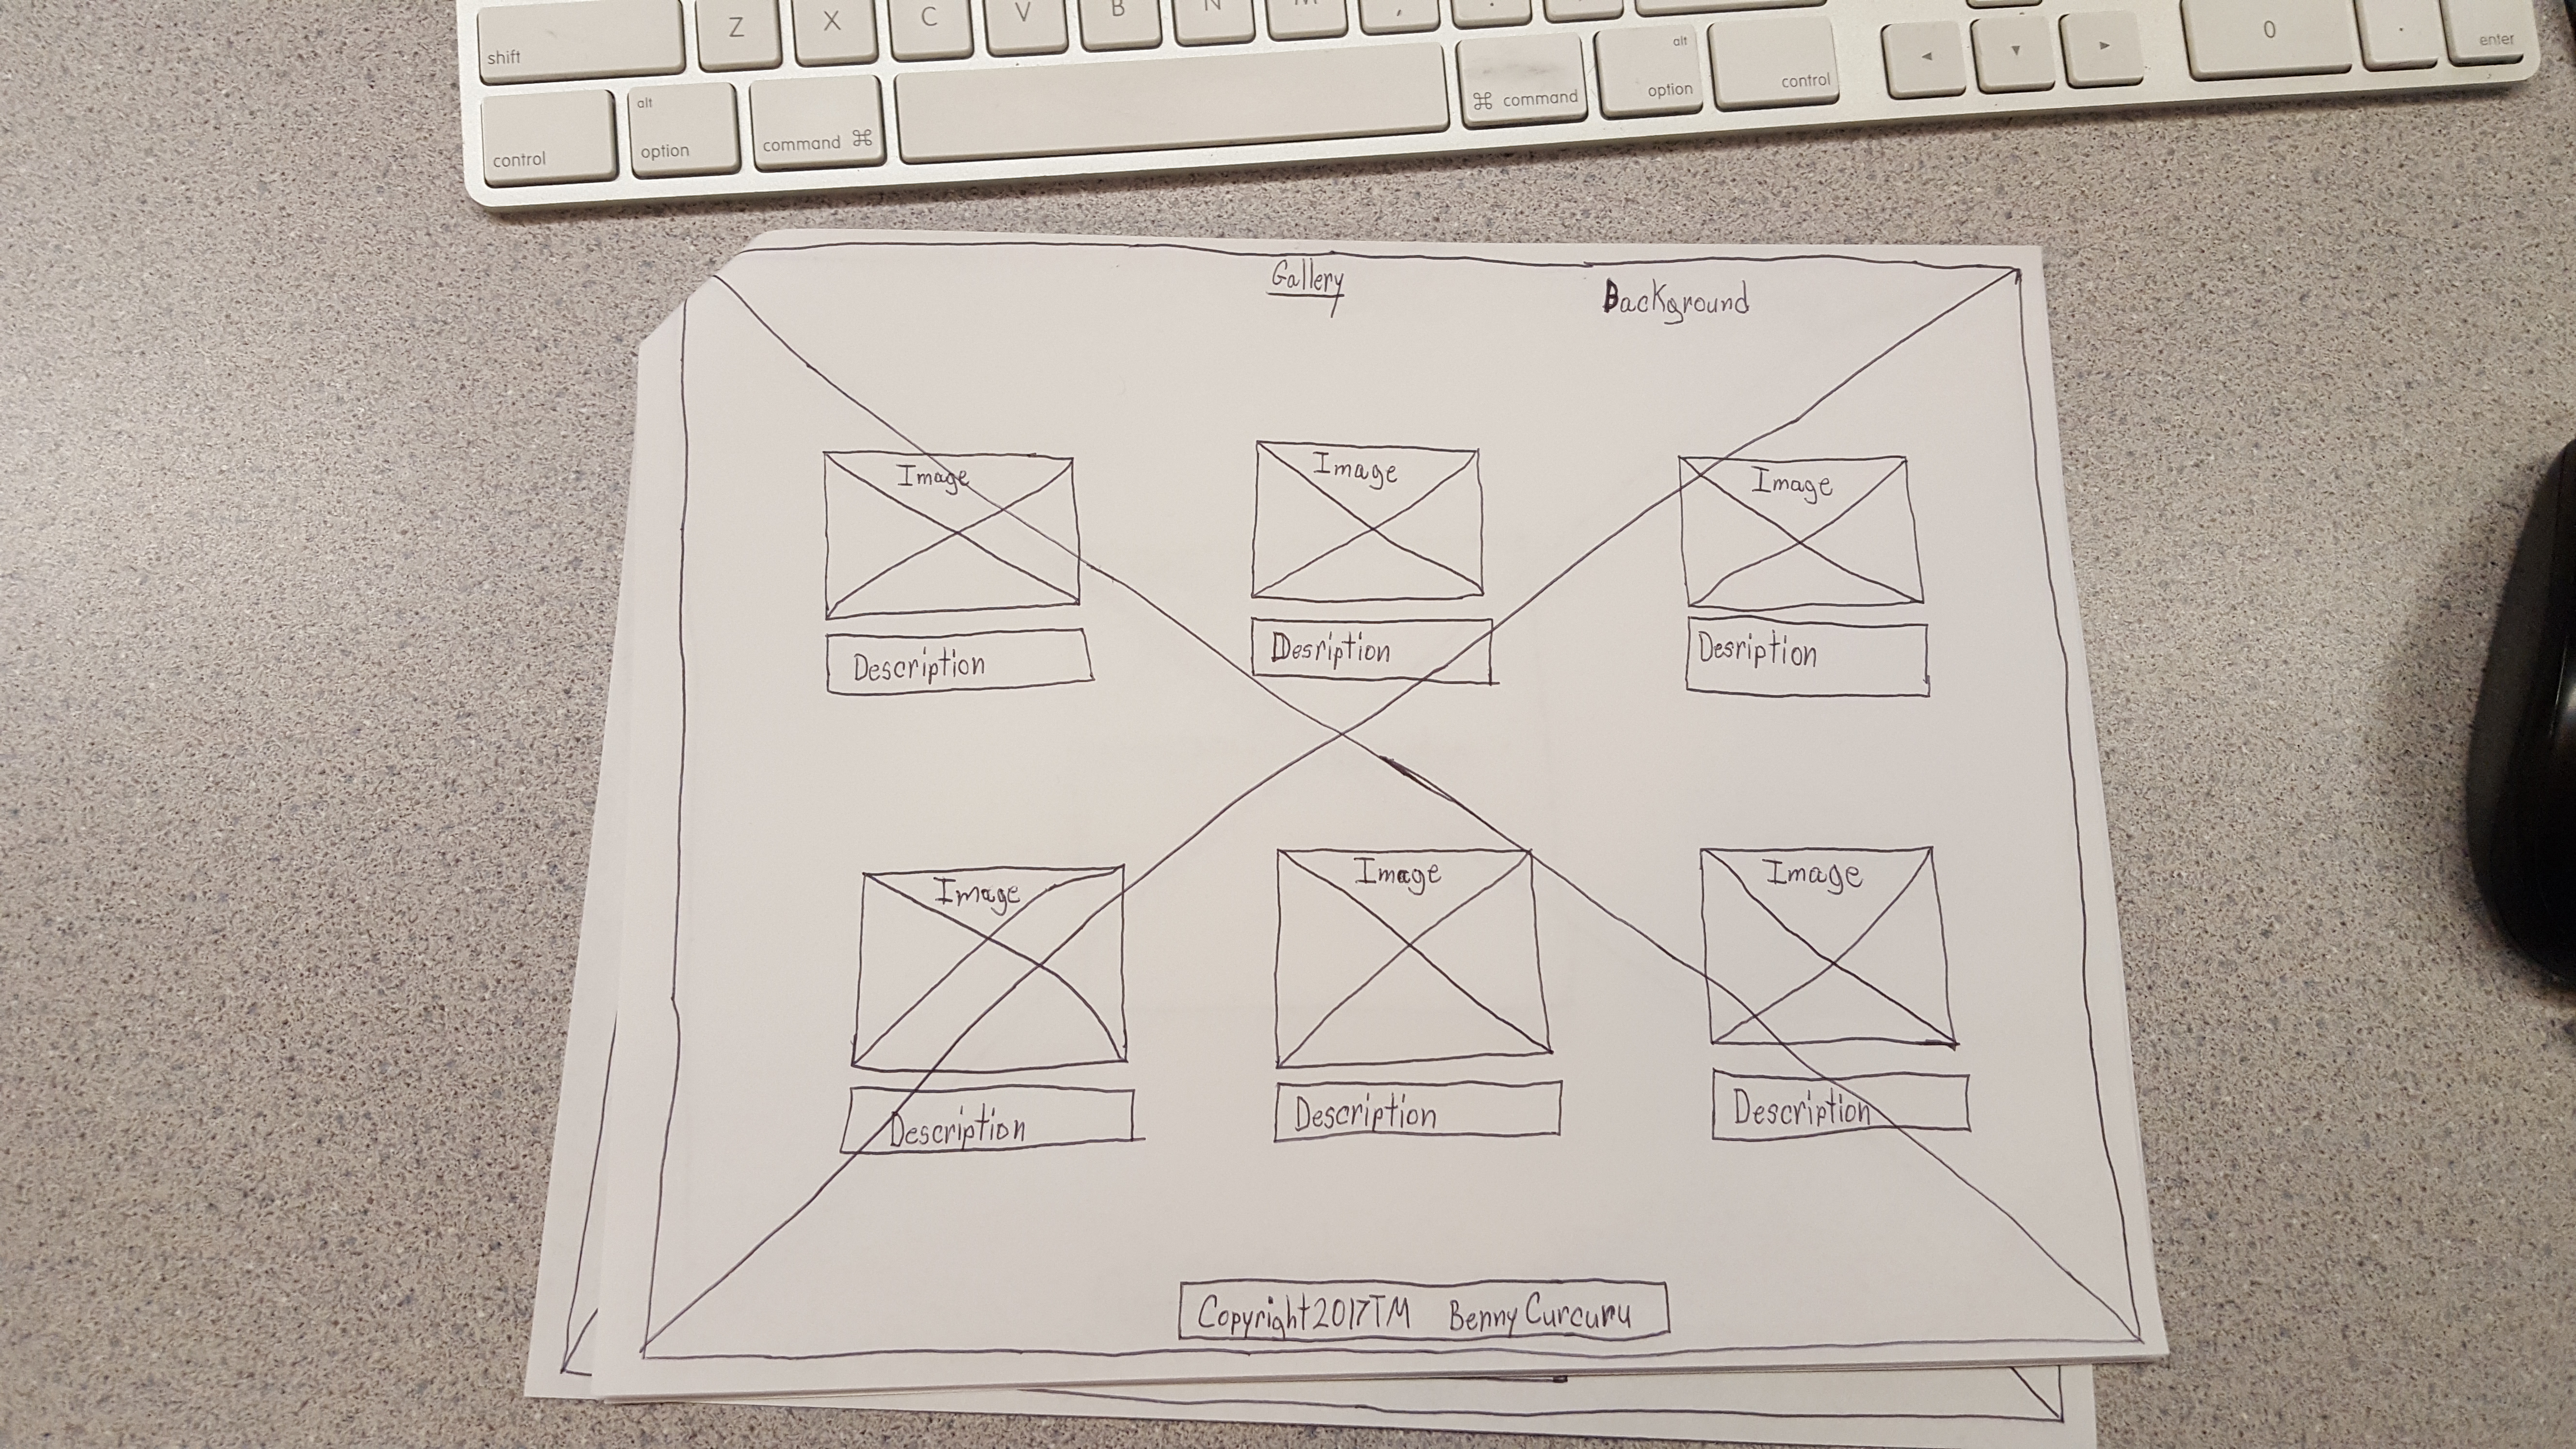 Z X C V B N M ,
shift
alt
alt
control option command ⌘
⌘ command option control
◄ ▼ ►
0 . enter
Gallery
Background
Image Image Image
Description Desription Desription
Image Image Image
Description Description Description
Copyright 2017TM Benny Curcuru